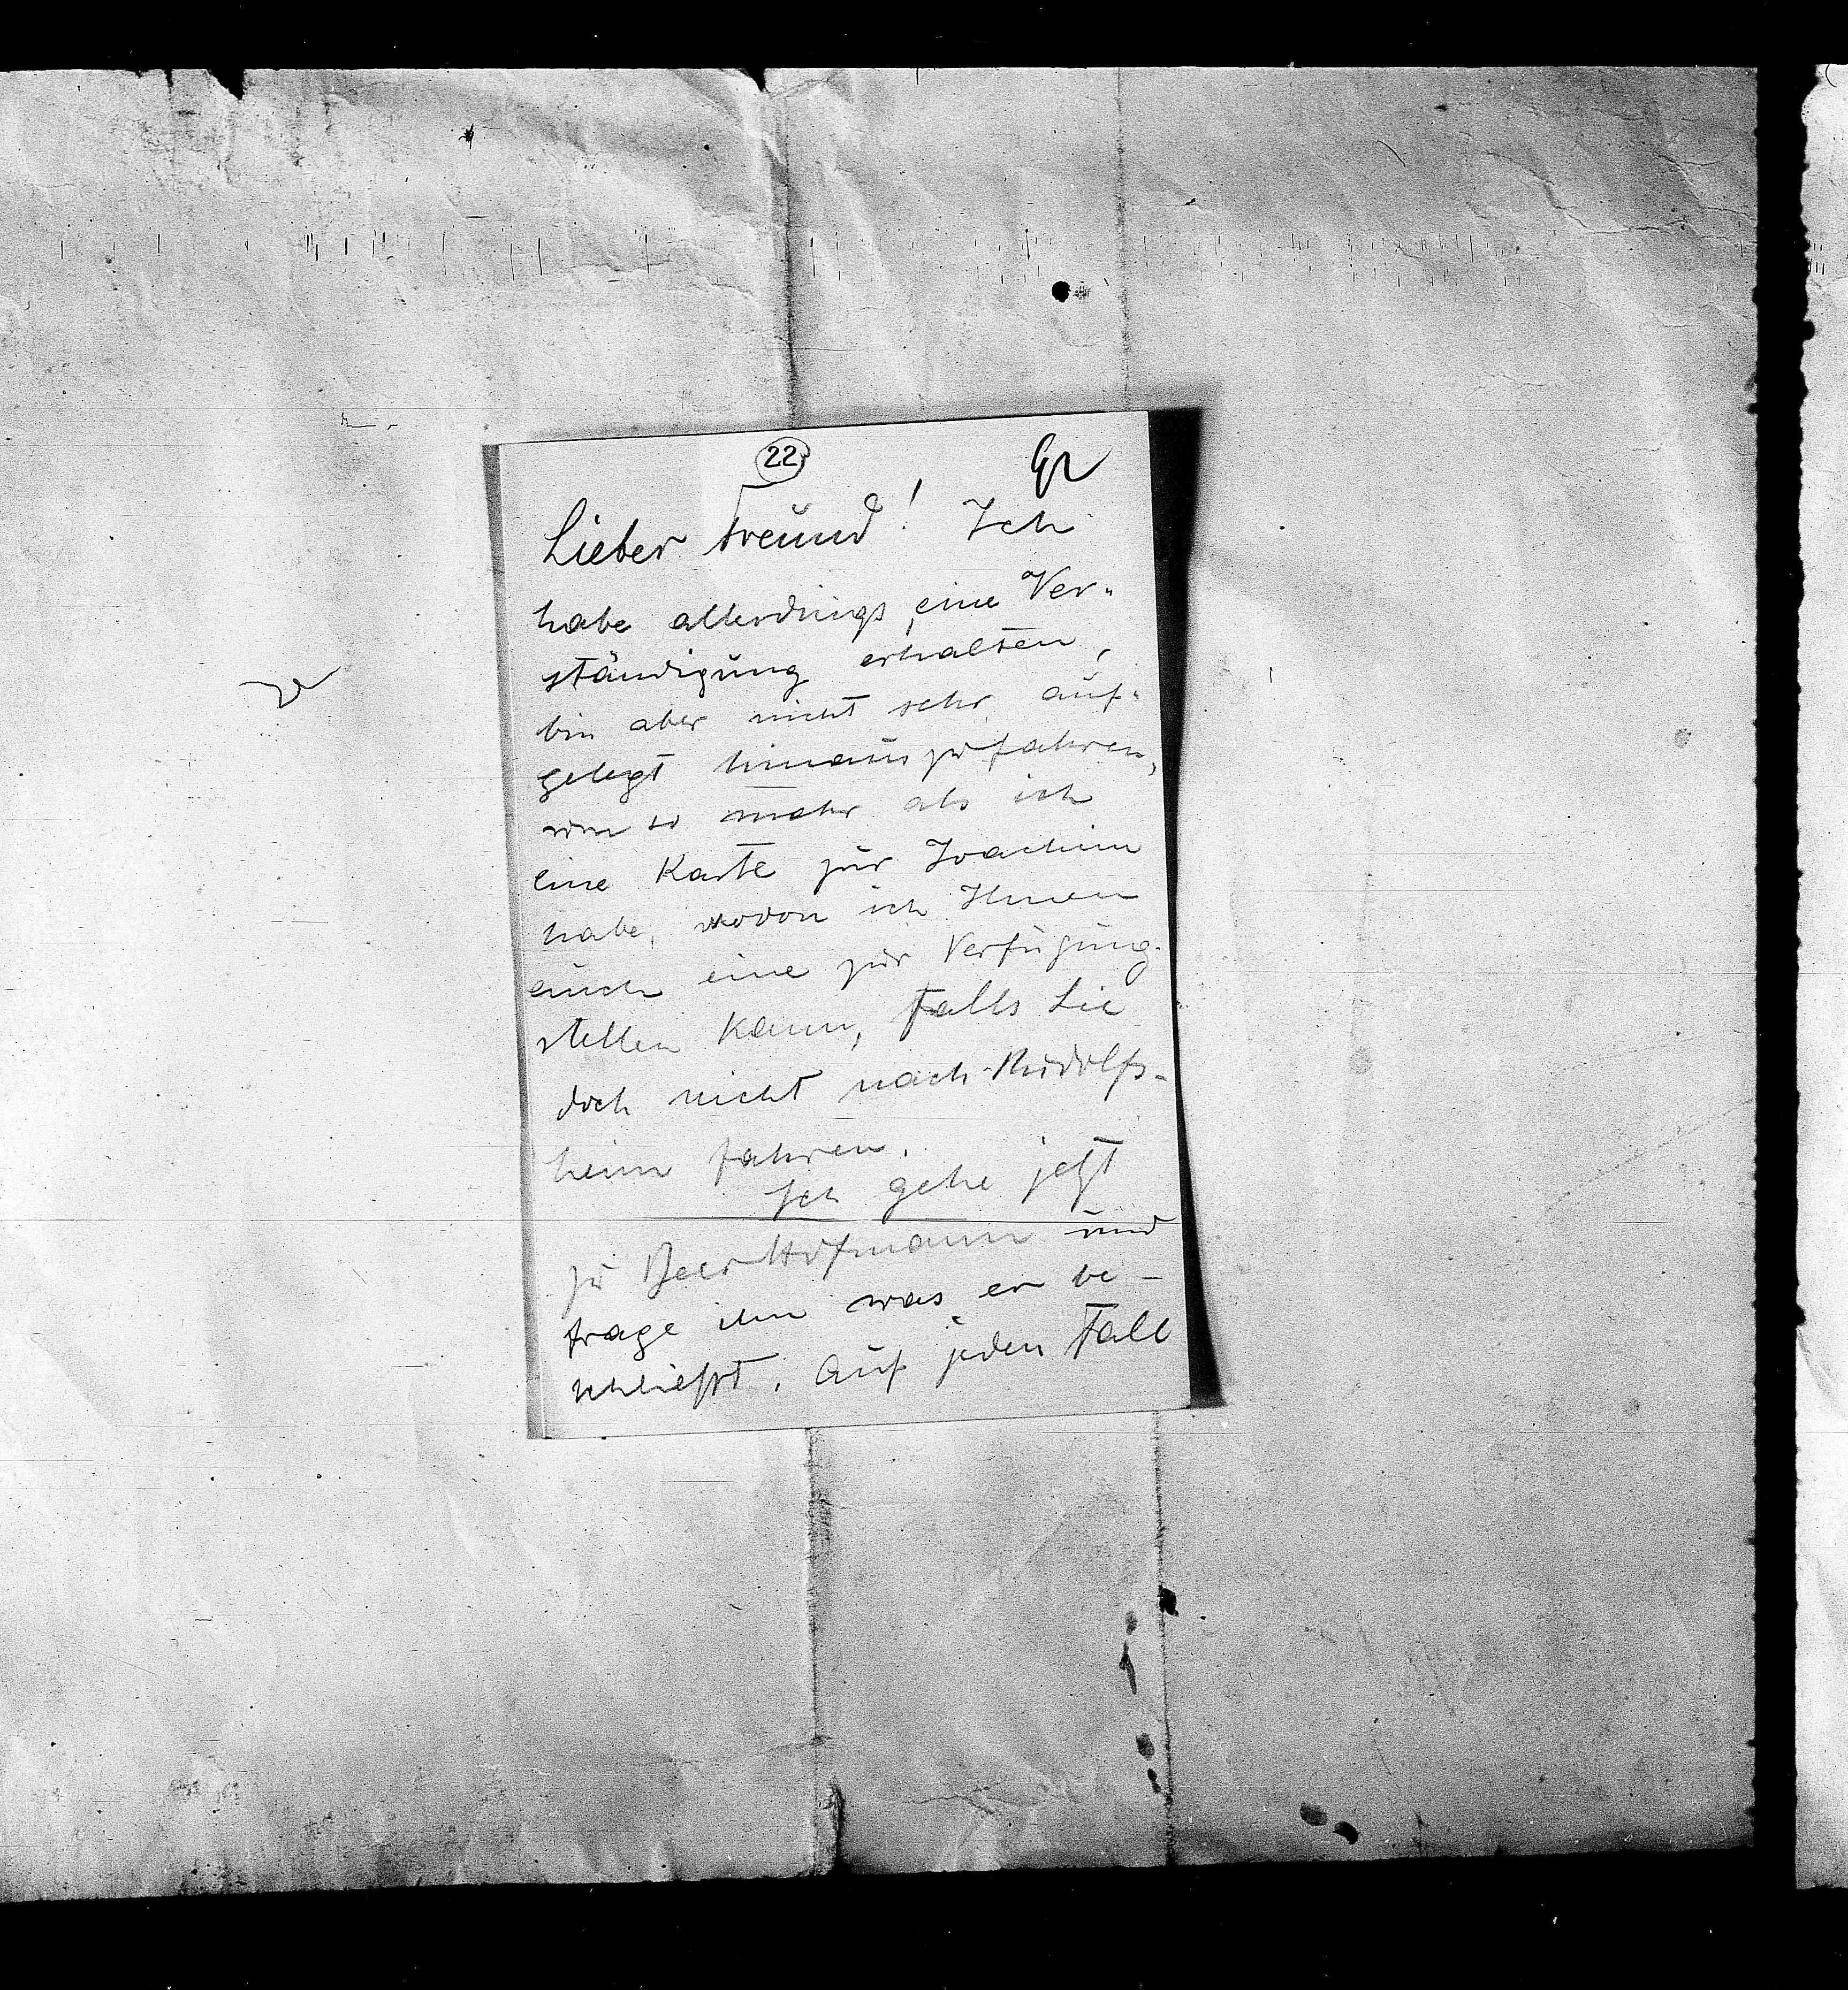 22
Lieber Freund! Ich
habe allerdings eine Ver-
ständigung erhalten,
bin aber nicht sehr auf-
gelegt hinauszufahren,
um so mehr als ich
eine Karte für Joachim
habe, wovon ich Ihnen
auch eine zur Verfügung
stellen kann, falls Sie
doch nicht nach Rudolfs-
heim fahren.
Ich gehe jetzt
zu Beer-Hofmann und
frage ihn was er be-
schließt. Auf jeden Fall